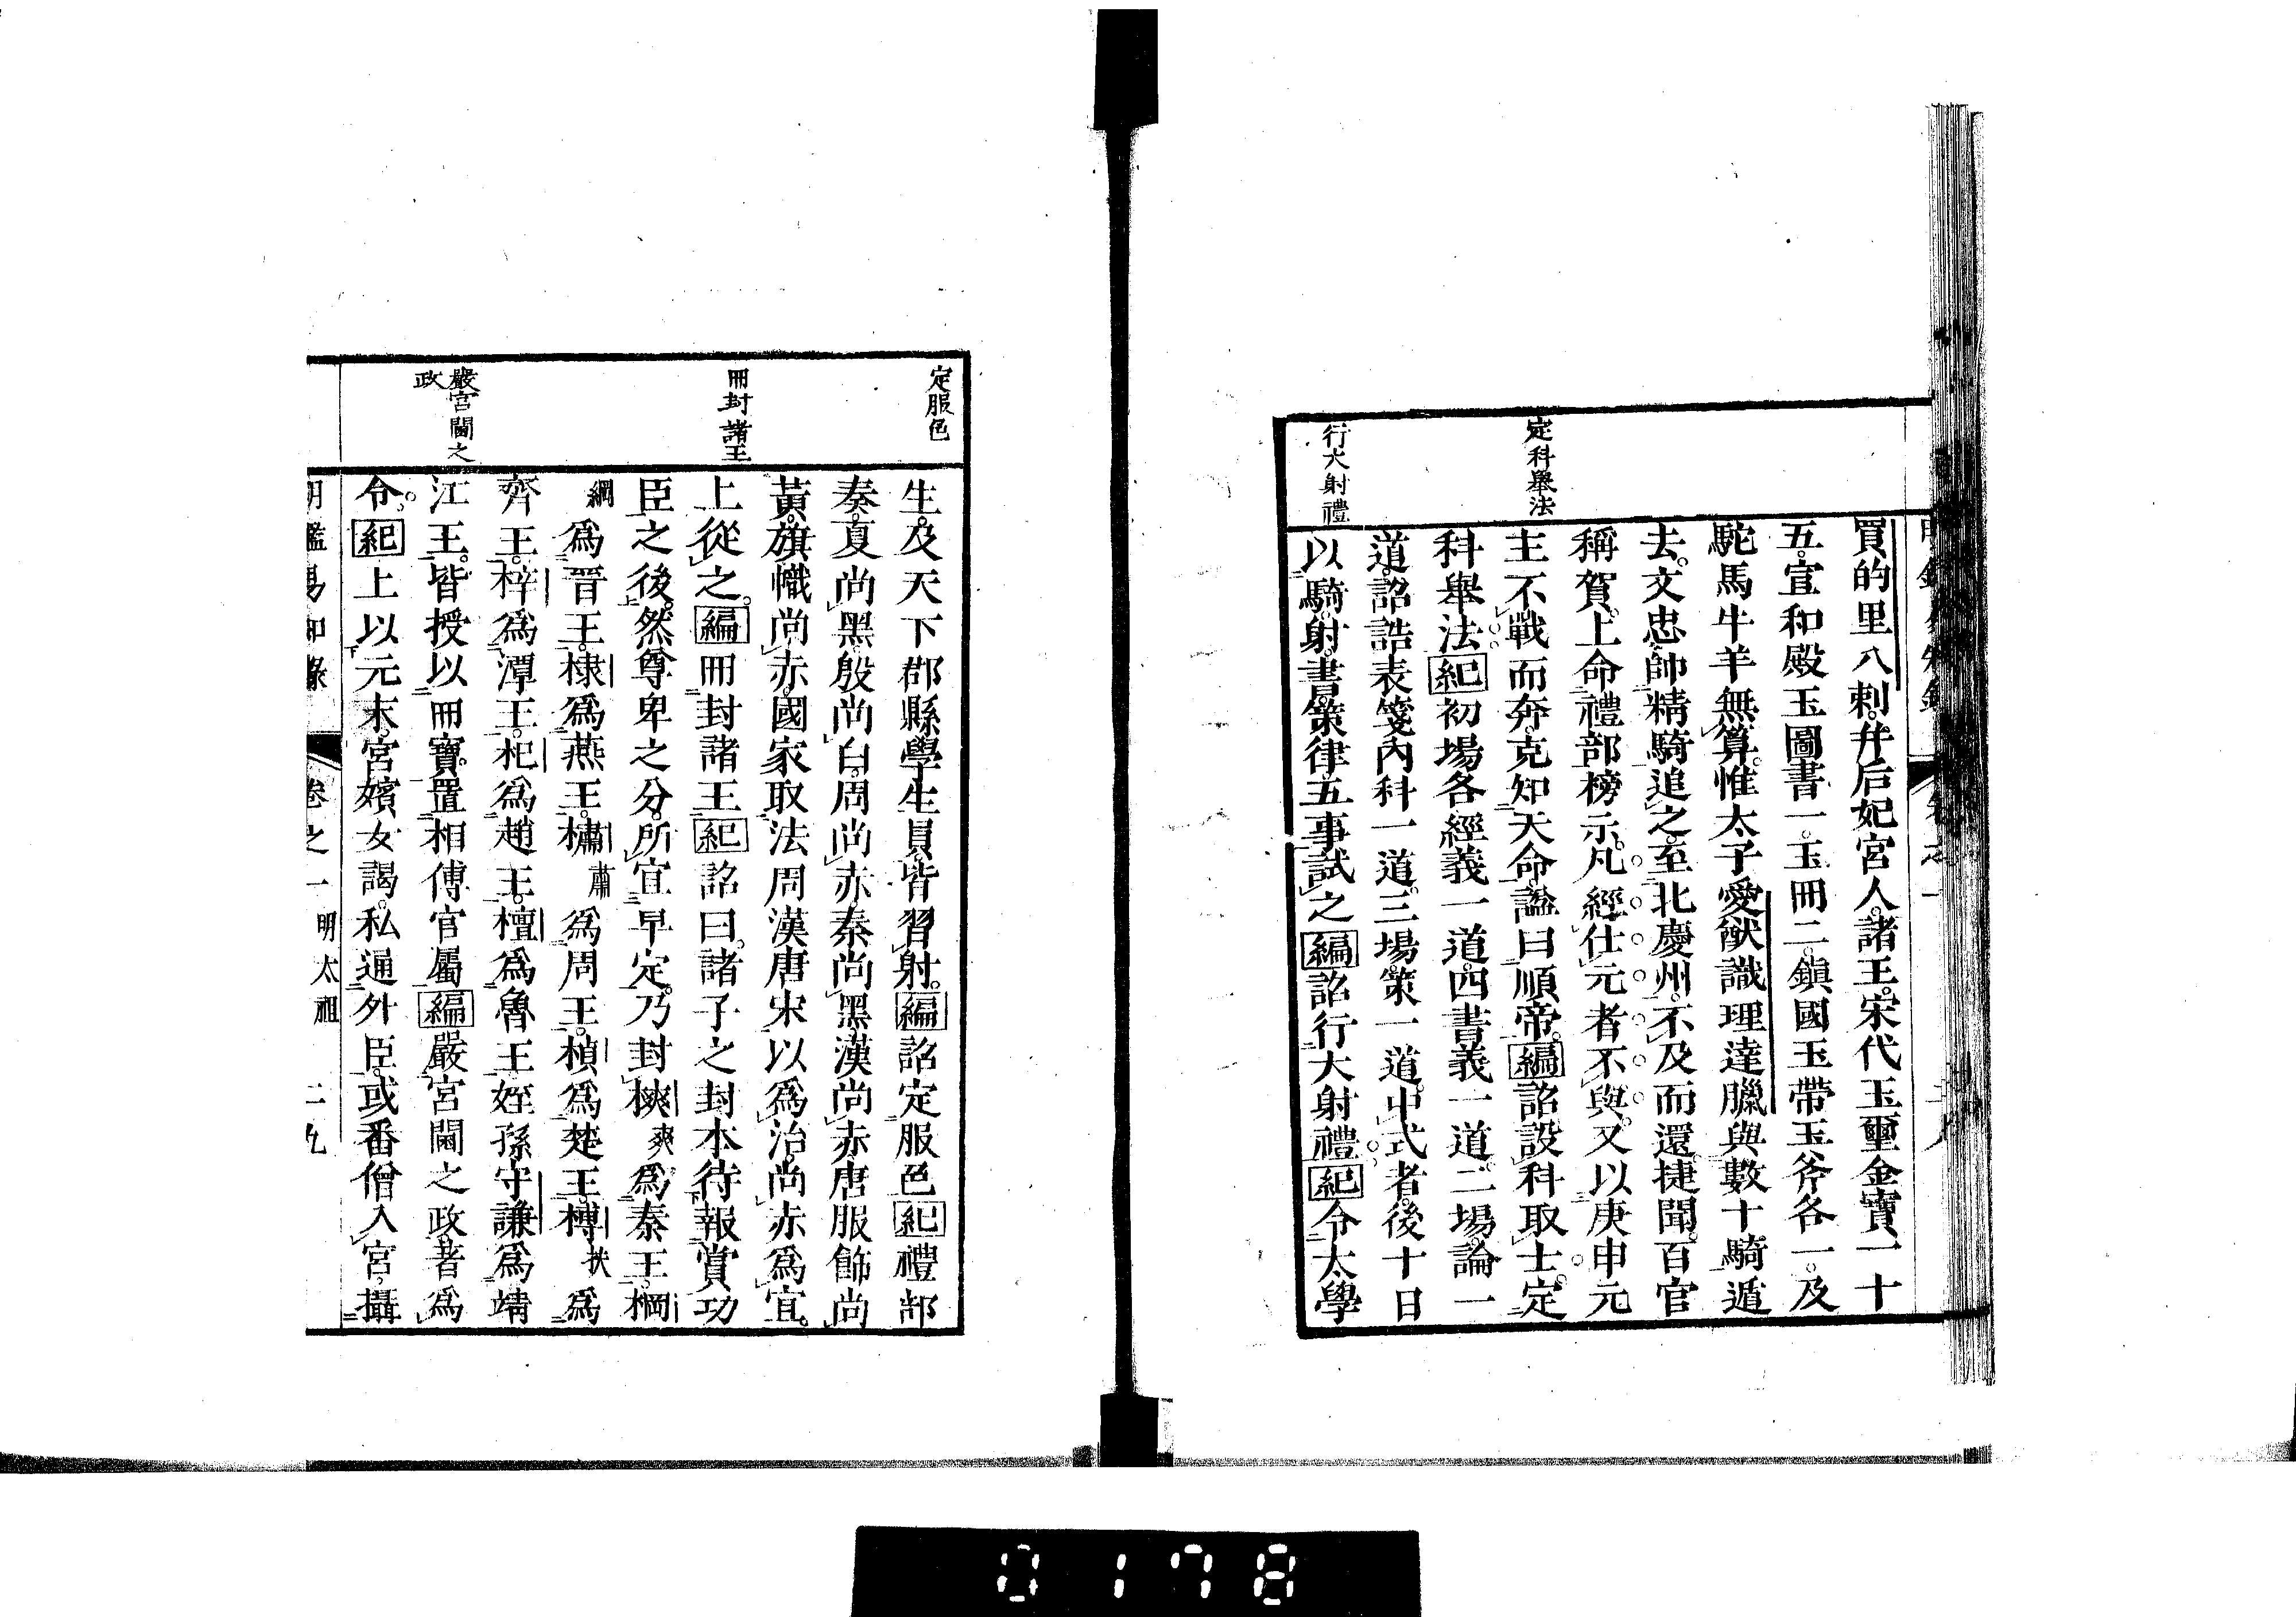 買的里八剌。并后妃宮人。諸王。宋代玉璽金寶一十
五。宣和殿玉圖書一。玉冊二。鎮國玉帶玉斧各一。及
駝馬牛羊無算。惟太子愛猷識理達臘與數十騎遁
去。文忠帥精騎追之。至北慶州。不及而還。捷聞。百官
稱賀。上命禮部榜示。凡經仕元者不與。又以庚申元
定科舉法
主不戰而奔。克知天命。謚曰順帝。編詔設科取士。定
科舉法。紀初場各經義一道。四書義一道。二場。論一
道。詔誥表箋內科一道。三場。策一道。中式者。後十日
行大射禮
以騎。射。書。策。律。五事試之編詔行大射禮。紀令太學
定服色
生。及天下郡縣學生員。皆習射。編詔定服色紀禮部
奏。夏尚黑。殷尚白。周尚赤。秦尚黑。漢尚赤。唐服飾尚
黃。旗幟尚赤。國家取法周漢唐宋以爲治。尚赤爲宜。
冊封諸王
上從之。編冊封諸王紀詔曰。諸子之封。本待報賞功
臣之後。然尊卑之分。所宜早定。乃封樉爽爲秦王。棡
綱爲晉王。棣爲燕王。橚肅爲周王。楨爲楚王。榑扶爲
齊王。梓爲潭王。杞爲趙王。檀爲魯王。姪孫守謙爲靖
嚴宮閫之
政
江王。皆授以冊寶。置相傅官屬編嚴宮閫之政。著爲
令。紀上以元末。宮嬪女謁。私通外臣。或番僧入宮。攝
明鑑易知錄 卷之一 明太祖 二九
0178